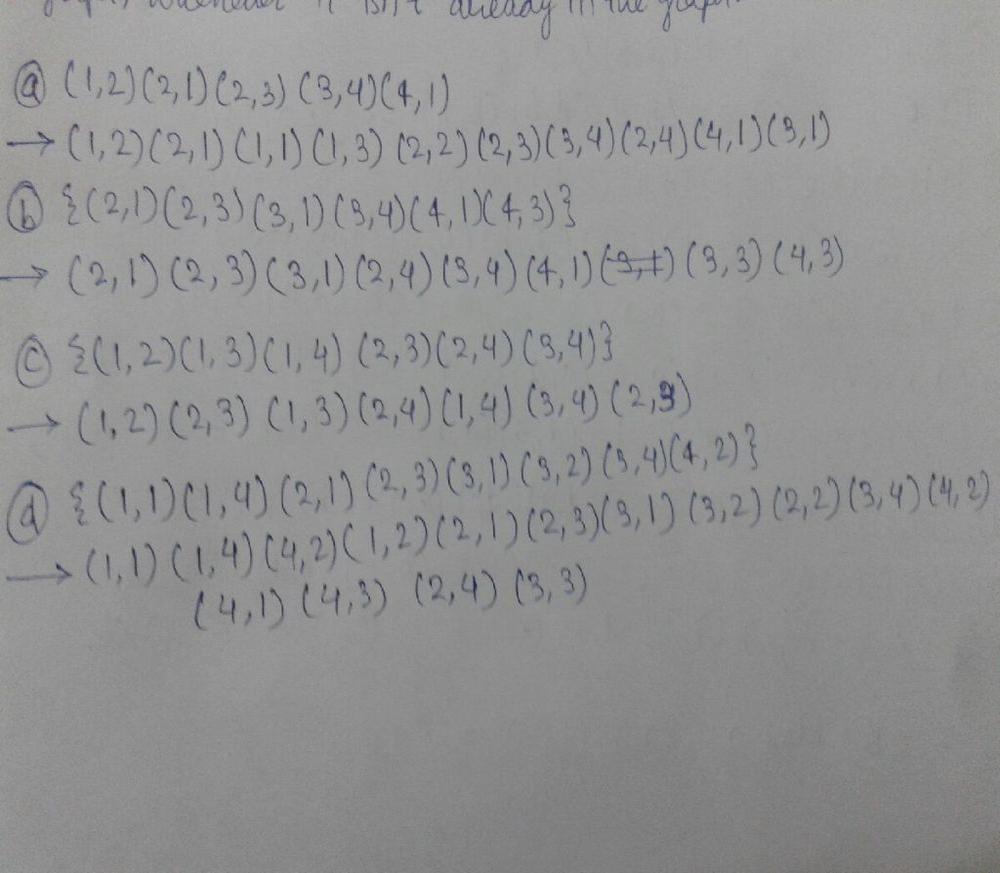 whenever it isn't already in the graph.
ⓐ (1,2)(2,1)(2,3)(3,4)(4,1)
→ (1,2)(2,1)(1,1)(1,3)(2,2)(2,3)(3,4)(2,4)(4,1)(3,1)
ⓑ {(2,1)(2,3)(3,1)(3,4)(4,1)(4,3)}
→ (2,1)(2,3)(3,1)(2,4)(3,4)(4,1)(3,1)(3,3)(4,3)
ⓒ {(1,2)(1,3)(1,4)(2,3)(2,4)(3,4)}
→ (1,2)(2,3)(1,3)(2,4)(1,4)(3,4)(2,3)
ⓓ {(1,1)(1,4)(2,1)(2,3)(3,1)(3,2)(3,4)(4,2)}
→ (1,1)(1,4)(4,2)(1,2)(2,1)(2,3)(3,1)(3,2)(2,2)(3,4)(4,2)
(4,1)(4,3)(2,4)(3,3)